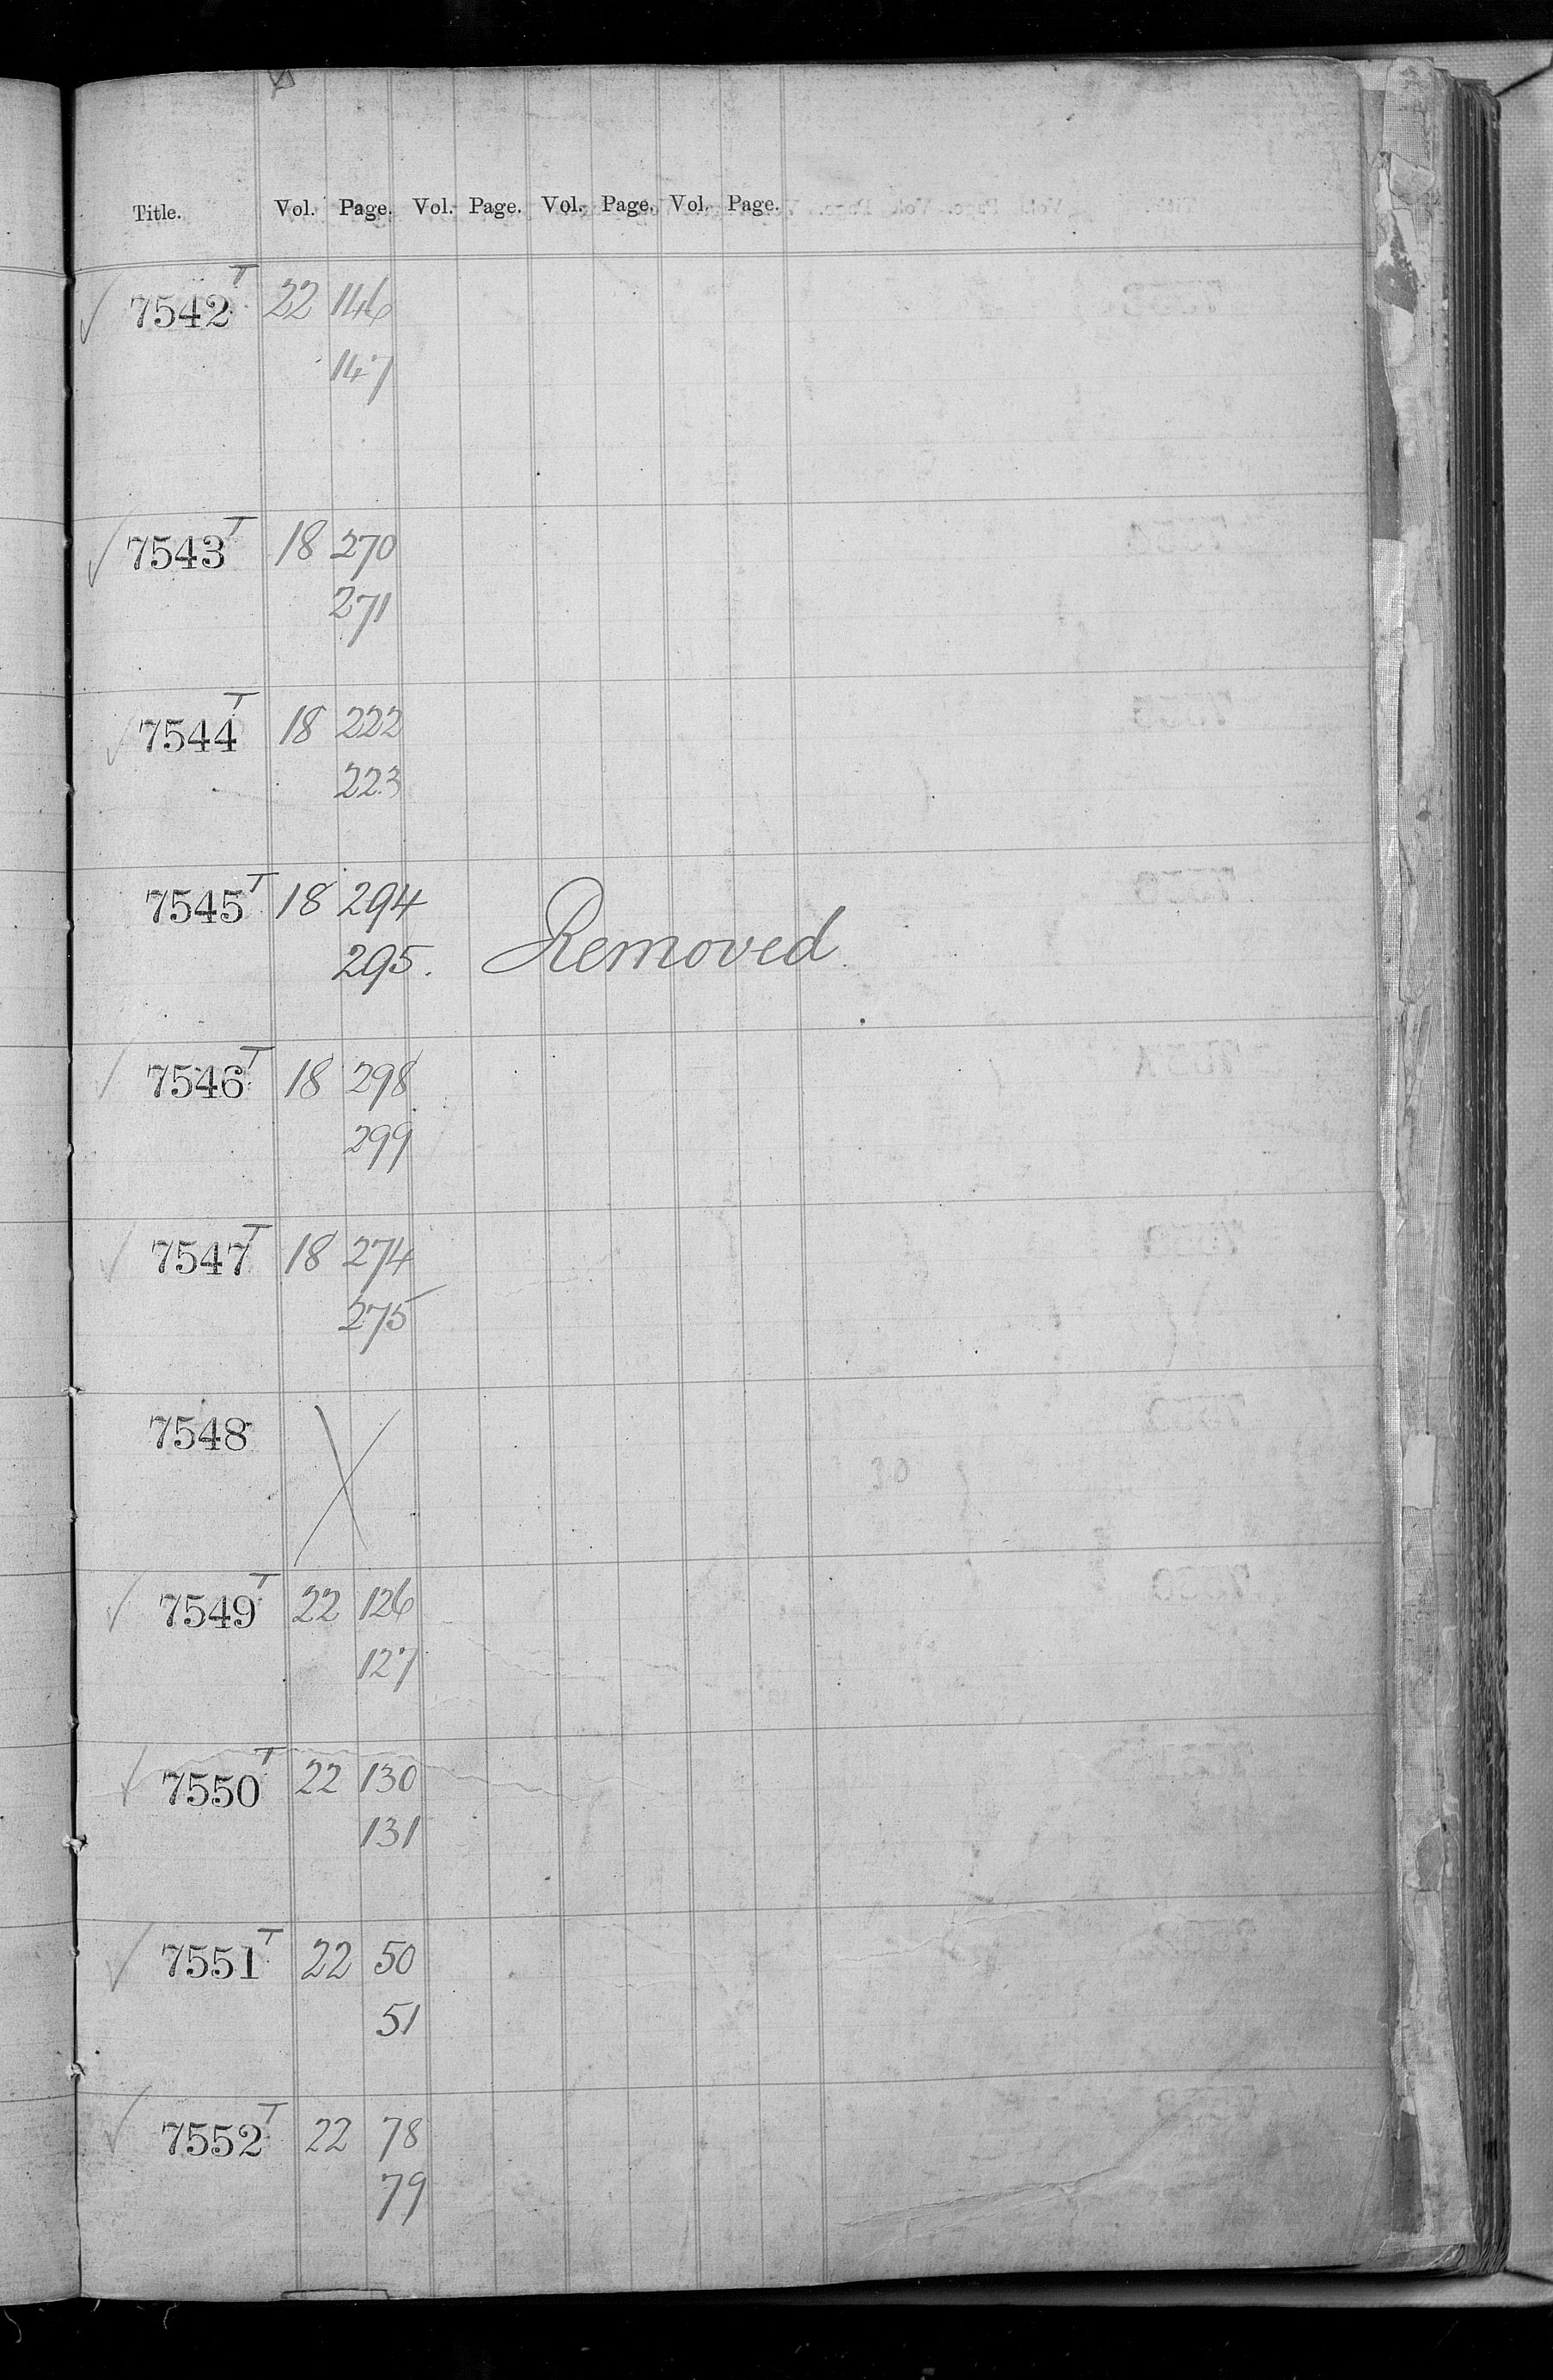 Title. Vol. Page. Vol. Page. Vol. Page. Vol. Page.
✓ 7542 T 22 146
147
✓ 7543 T 18 270
271
✓ 7544 T 18 222
223
7545 T 18 294
295. Removed
✓ 7546 T 18 298
299
✓ 7547 T 18 274
275
7548 X
30
✓ 7549 T 22 126
127
✓ 7550 T 22 130
131
✓ 7551 T 22 50
51
✓ 7552 T 22 78
79